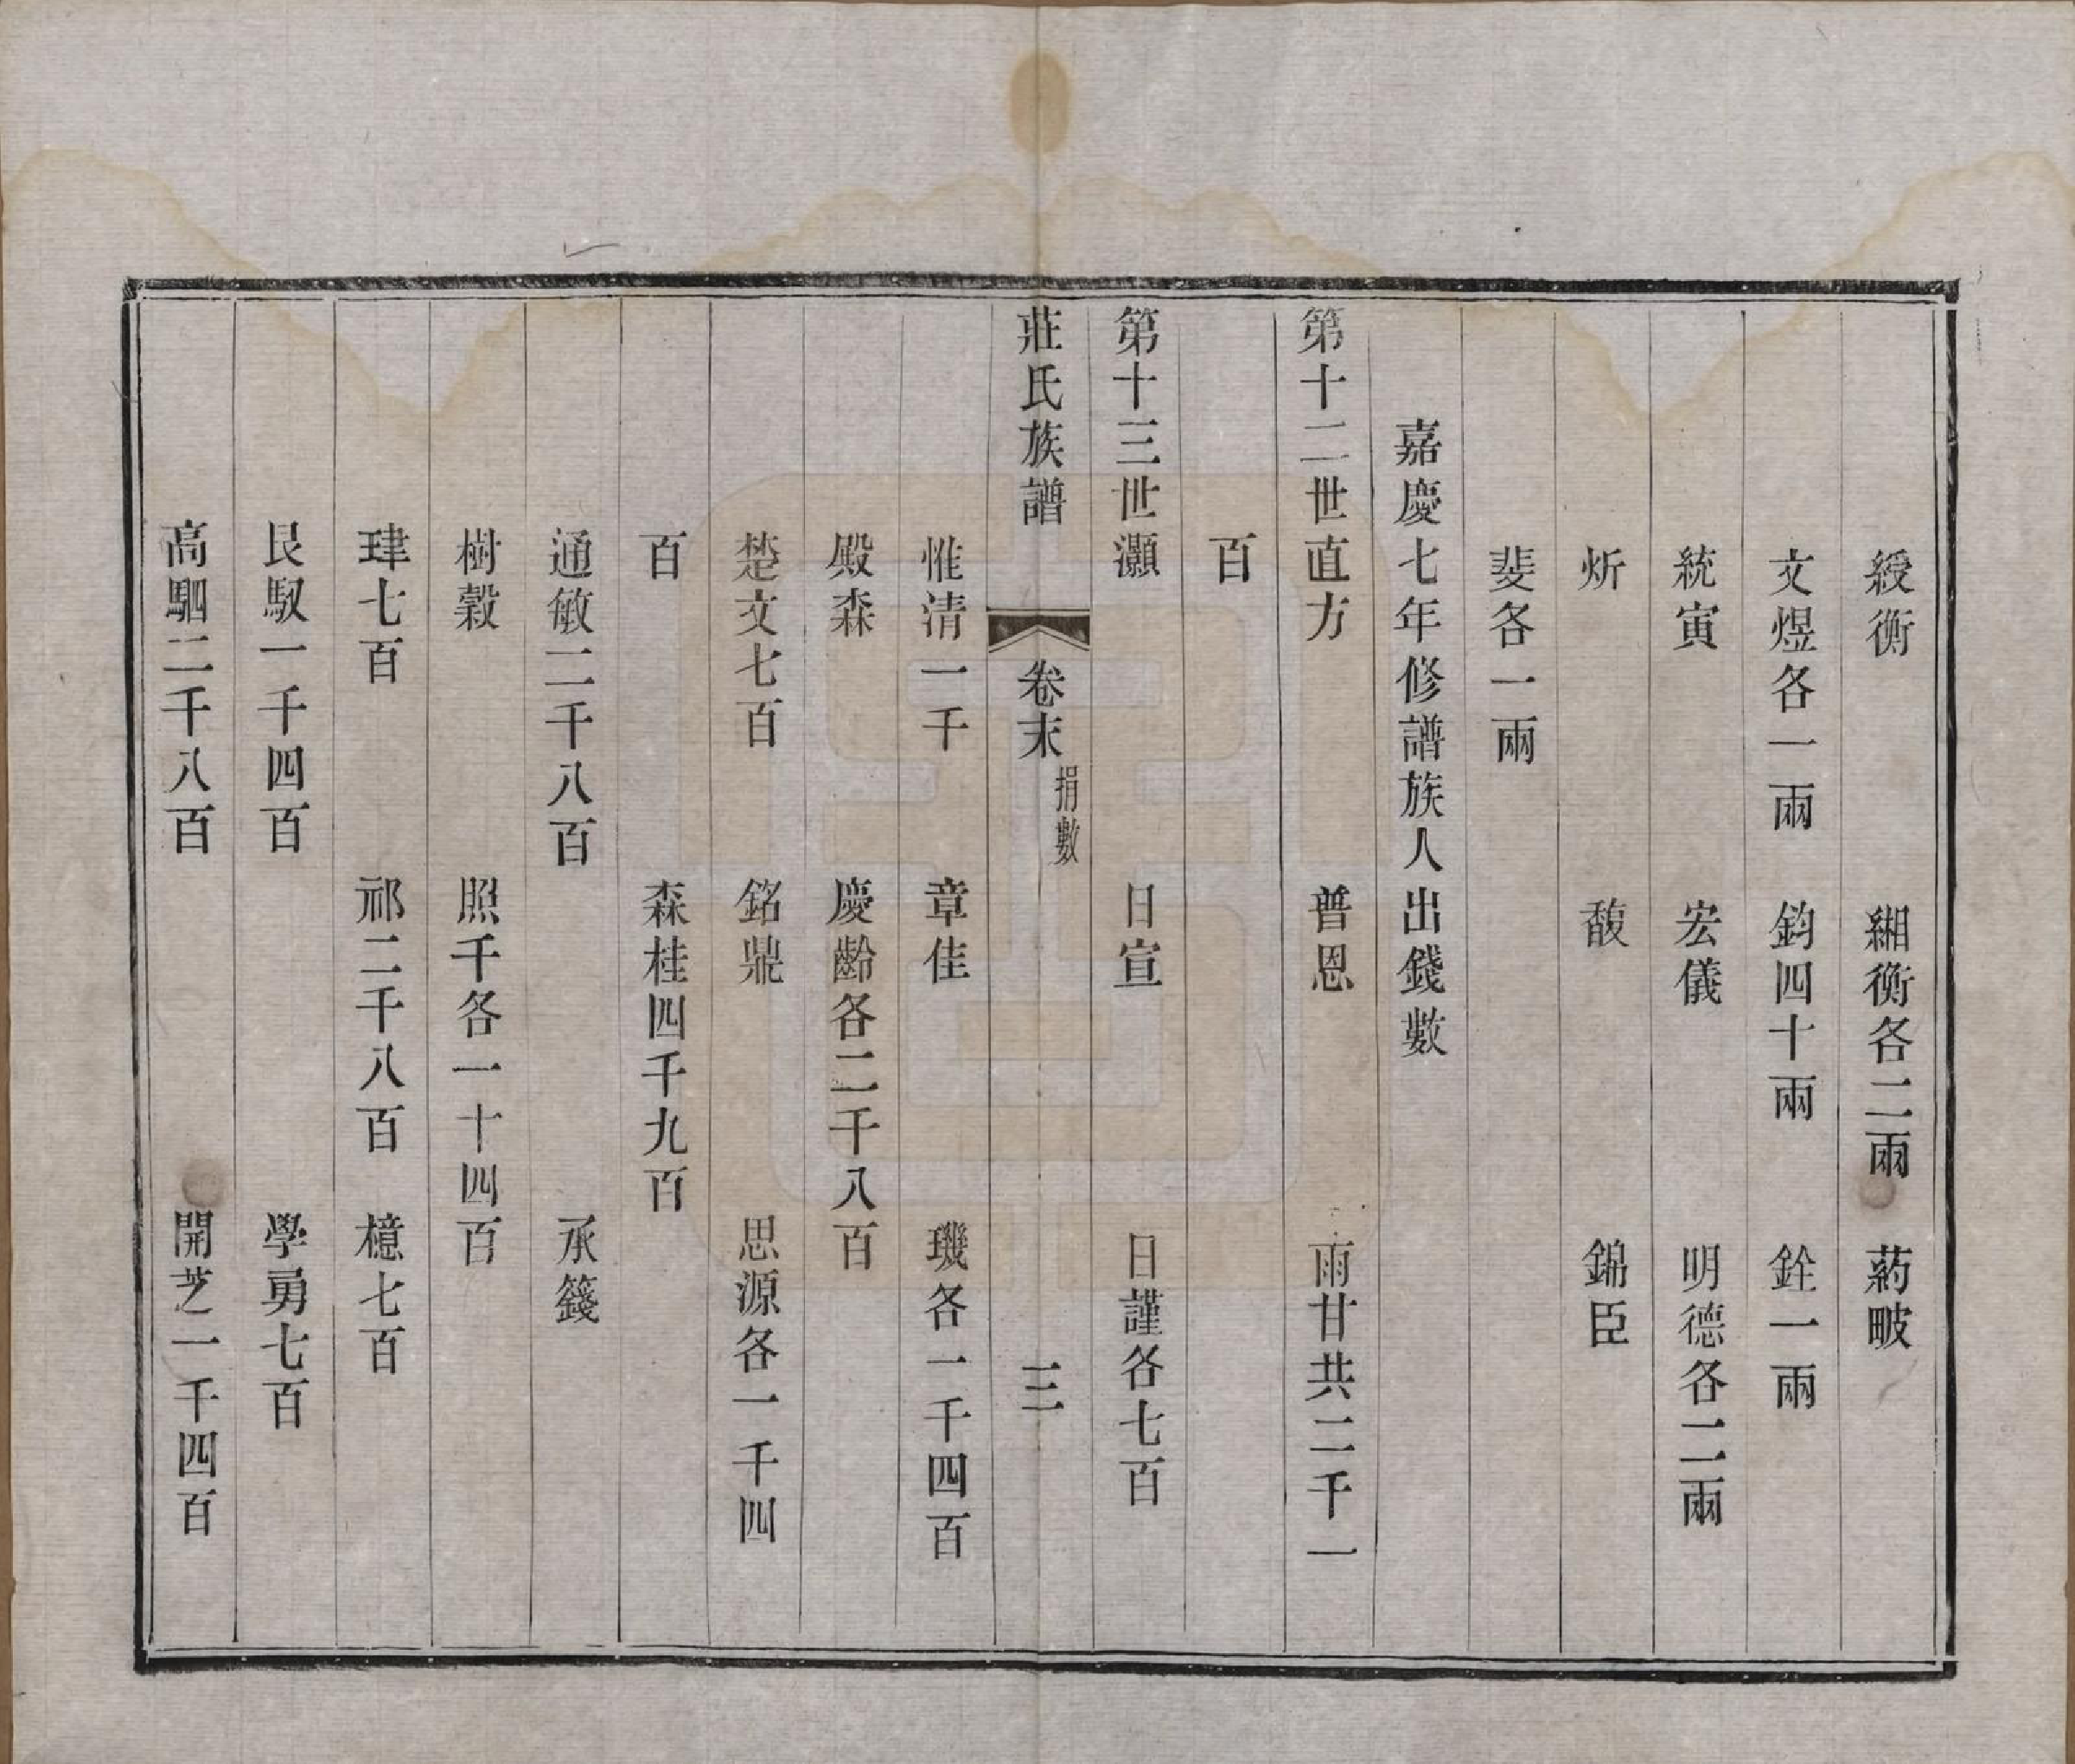 綬衡　緗衡各二兩　葯畡
文煜各一兩　鈞四十兩　銓一兩
統寅　宏儀　明德各二兩
炘　馥　錦臣
斐各一兩
嘉慶七年修譜族人出錢數
第十二世直方　普恩　雨甘共二千一
百
第十三世灝　日宣　日謹各七百
莊氏族譜　卷末　捐數　三
惟清一千　章佳　璣各一千四百
殿森　慶齡各二千八百
楚文七百　銘鼎　思源各一千四
百　森桂四千九百
通敏二千八百　承籛
樹穀　照千各一十四百
珒七百　祁二千八百　檍七百
艮馭一千四百　學勇七百
高駟二千八百　開芝一千四百